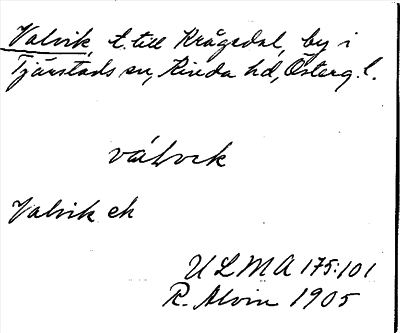 Valvik, t. till Krågedal, by i
Tjärstads sn, Kinda hd, Österg. l.
Valvik ek
ULMA 175:101
R. Alvin 1905